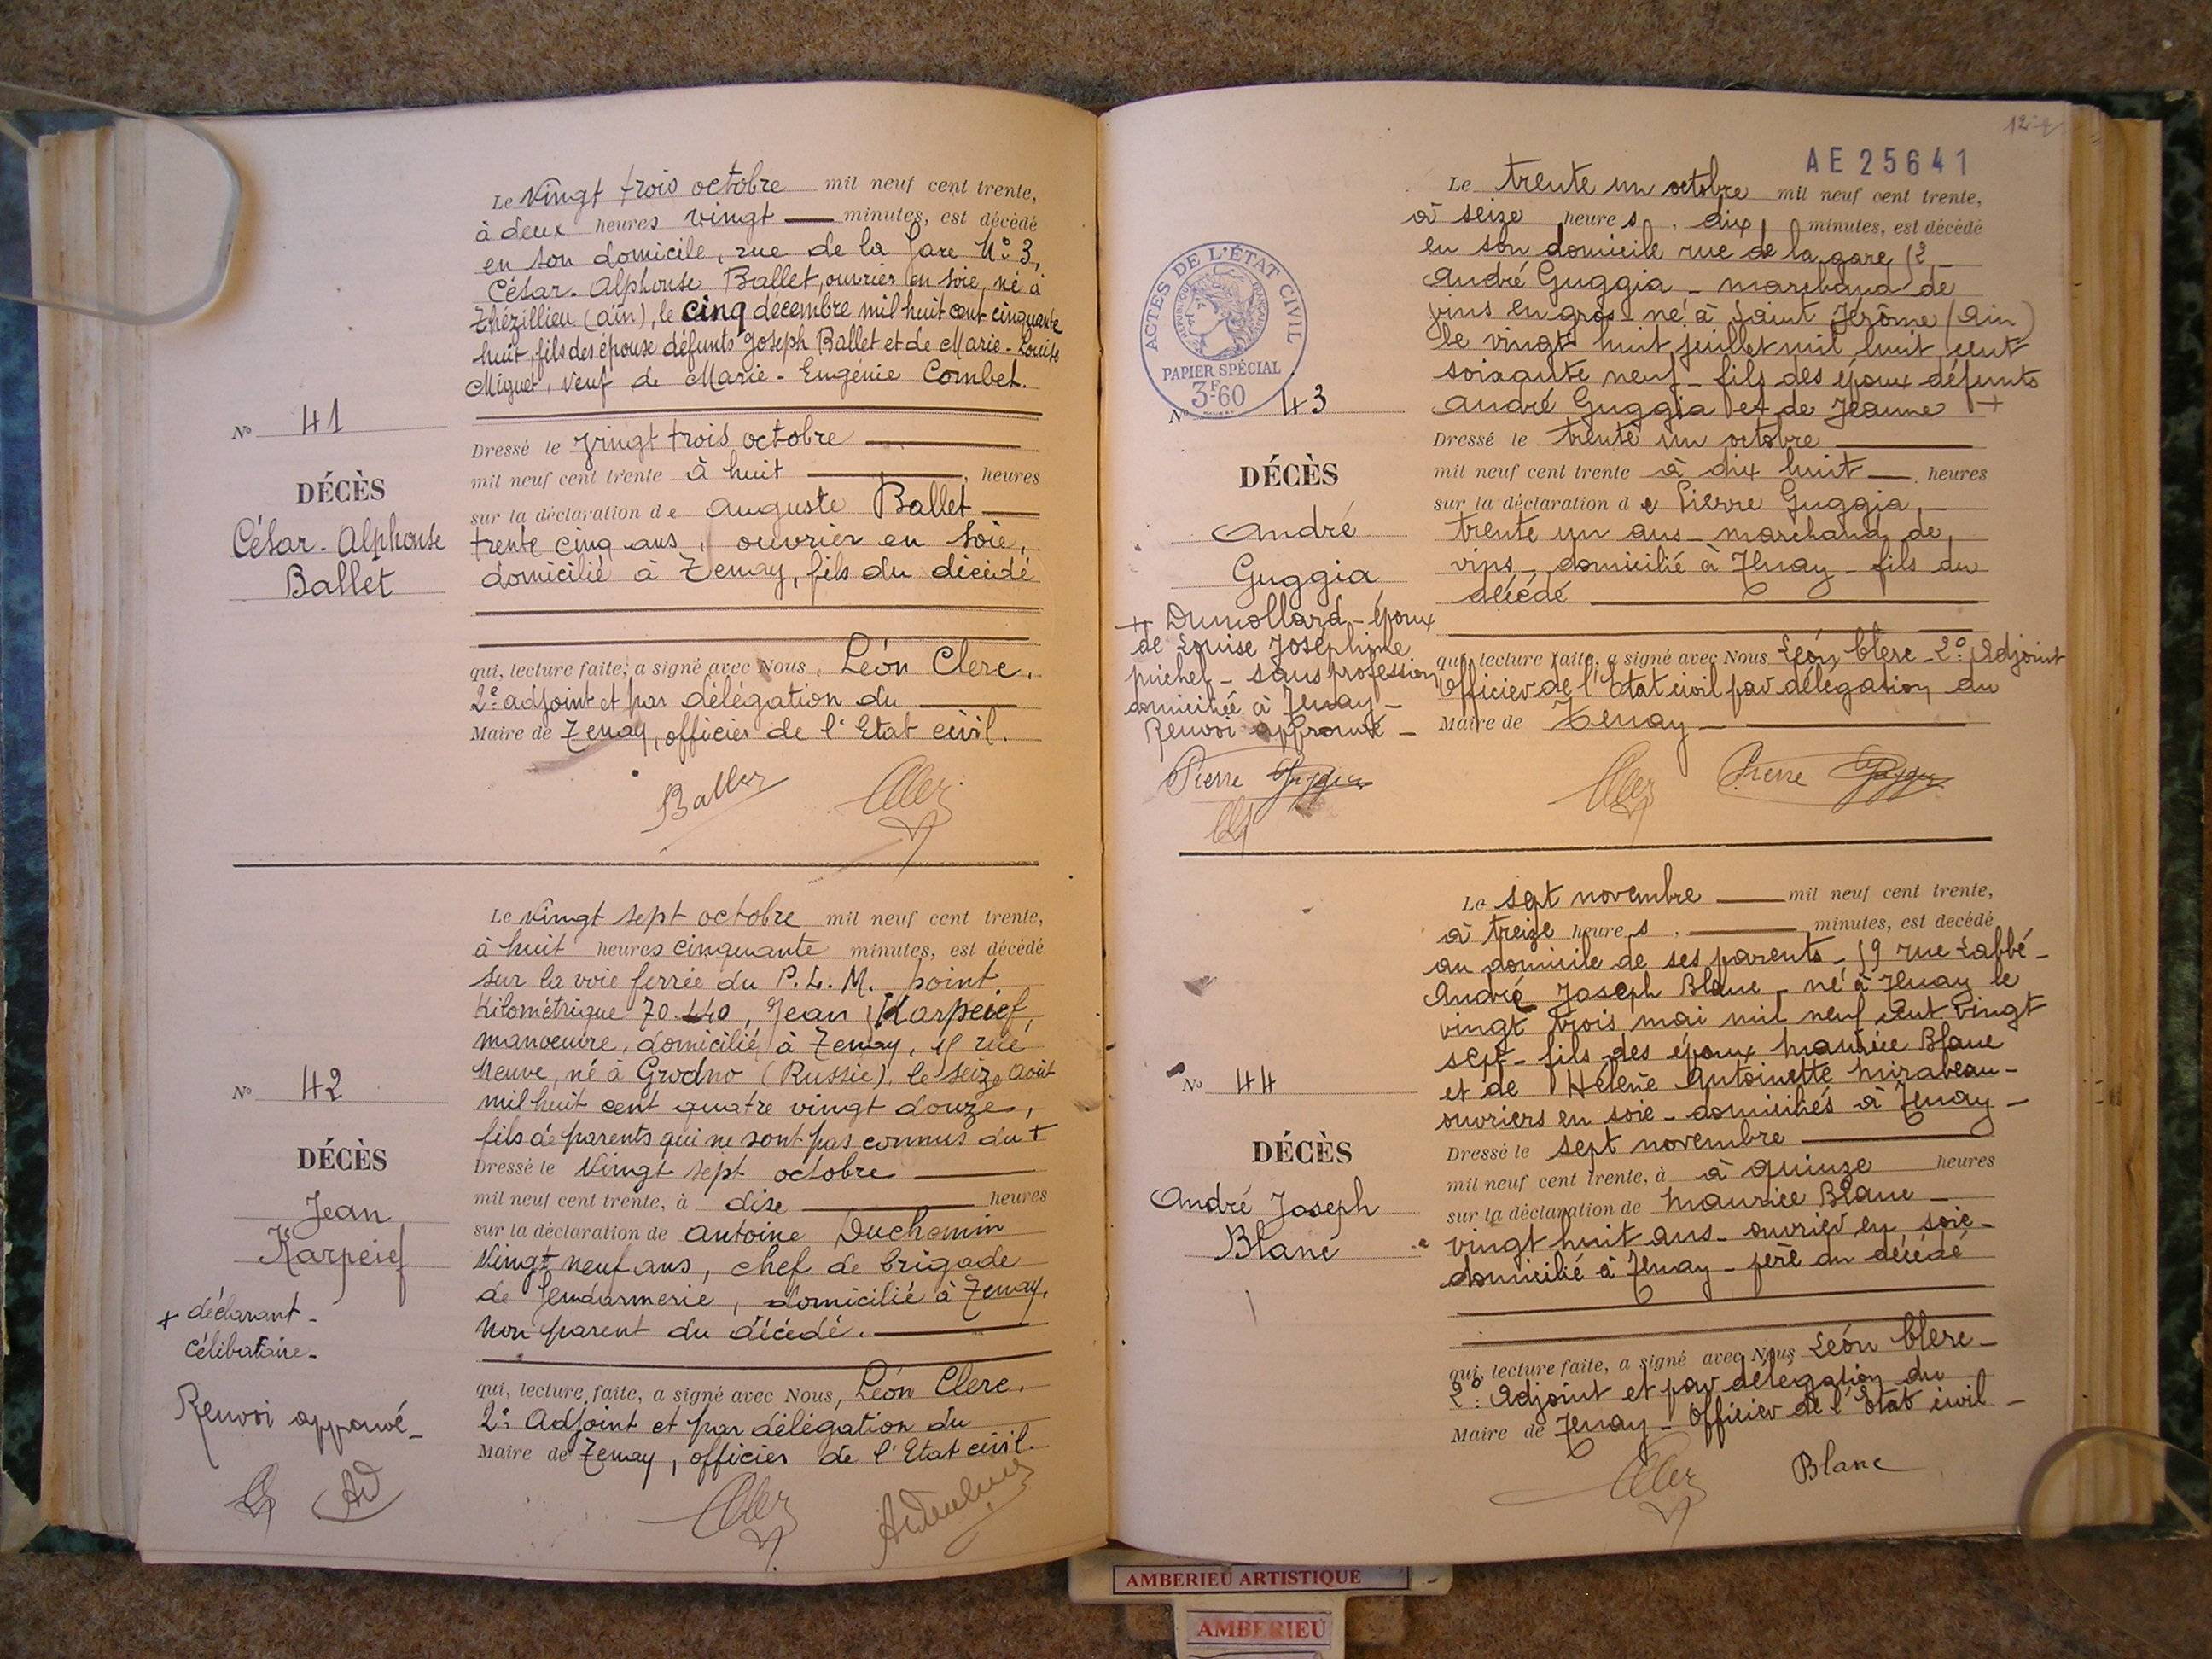 Le vingt trois octobre mil neuf cent trente,
à deux heures vingt minutes, est décédé
en son domicile, rue de la Gare N° 3,
César-Alphonse Ballet, ouvrier en soie, né à
Thézillieu (ain), le cinq décembre mil huit cent cinquante
huit, fils des épouse défunts Joseph Ballet et de Marie-Louise
Miguet, veuf de Marie-Eugénie Combet.
N° 41
DÉCÈS
César-Alphonse
Ballet
Dressé le vingt trois octobre
mil neuf cent trente à huit heures
sur la déclaration de auguste Ballet
trente cinq ans, ouvrier en soie,
domicilié à Tenay, fils du décédé
qui, lecture faite, a signé avec Nous, Léon Clerc,
2e adjoint et par délégation du
Maire de Tenay, officier de l'Etat civil.
Ballet Clerc
Le vingt sept octobre mil neuf cent trente,
à huit heures cinquante minutes, est décédé
sur la voie ferrée du P.L.M. point
Kilométrique 70.440, Jean Karpeief,
manoeuvre, domicilié à Tenay, rue
Neuve, né à Grodno (Russie), le seize août
mil huit cent quatre vingt douze,
fils de parents qui ne sont pas connus du +
N° 42
DÉCÈS
Jean
Karpeief
+ déclarant -
célibataire -
Renvoi approuvé -
AD
Dressé le vingt sept octobre
mil neuf cent trente, à dixe heures
sur la déclaration de antoine Duchemin
vingt neuf ans, chef de brigade
de Gendarmerie, domicilié à Tenay,
non parent du décédé.
qui, lecture faite, a signé avec Nous, Léon Clerc.
2e Adjoint et par délégation du
Maire de Tenay, officier de l'Etat civil.
Clerc
AE 25641
Le trente un octobre mil neuf cent trente,
à seize heures, dix minutes, est décédé
en son domicile rue de la gare 12
André Guggia - marchand de
vins en gros - né à Saint Jérôme (Ain)
le vingt huit juillet mil huit cent
soixante neuf - fils des époux défunts
André Guggia et de Jeanne +
ACTES DE L'ÉTAT CIVIL
RÉPUBLIQUE FRANÇAISE
PAPIER SPÉCIAL
3F60
N° 43
DÉCÈS
André
Guggia
+ Dumollard - époux
de Louise Joséphine
michel - sans profession
domiciliée à Tenay -
Renvoi approuvé -
Pierre Guggia
Dressé le trente un octobre
mil neuf cent trente à dix huit heures
sur la déclaration de Pierre Guggia,
trente un ans - marchand de
vins - domicilié à Tenay - fils du
décédé
qui, lecture faite, a signé avec Nous Léon Clerc - 2e Adjoint
officier de l'Etat civil par délégation du
Maire de Tenay -
Clerc Pierre Guggia
Le sept novembre mil neuf cent trente,
à treize heures, minutes, est décédé
au domicile de ses parents - 19 rue Labbé -
André Joseph Blanc - né à Tenay le
vingt trois mai mil neuf cent vingt
sept - fils des époux Maurice Blanc
et de Hélène Antoinette Mirabeau -
ouvriers en soie - domiciliés à Tenay -
N° 44
DÉCÈS
André Joseph
Blanc
Dressé le sept novembre
mil neuf cent trente, à à quinze heures
sur la déclaration de Maurice Blanc -
vingt huit ans - ouvrier en soie -
domicilié à Tenay - père du décédé
qui, lecture faite, a signé avec Nous Léon Clerc -
2e Adjoint et par délégation du
Maire de Tenay - Officier de l'Etat civil -
Clerc Blanc
AMBERIEU ARTISTIQUE
AMBERIEU